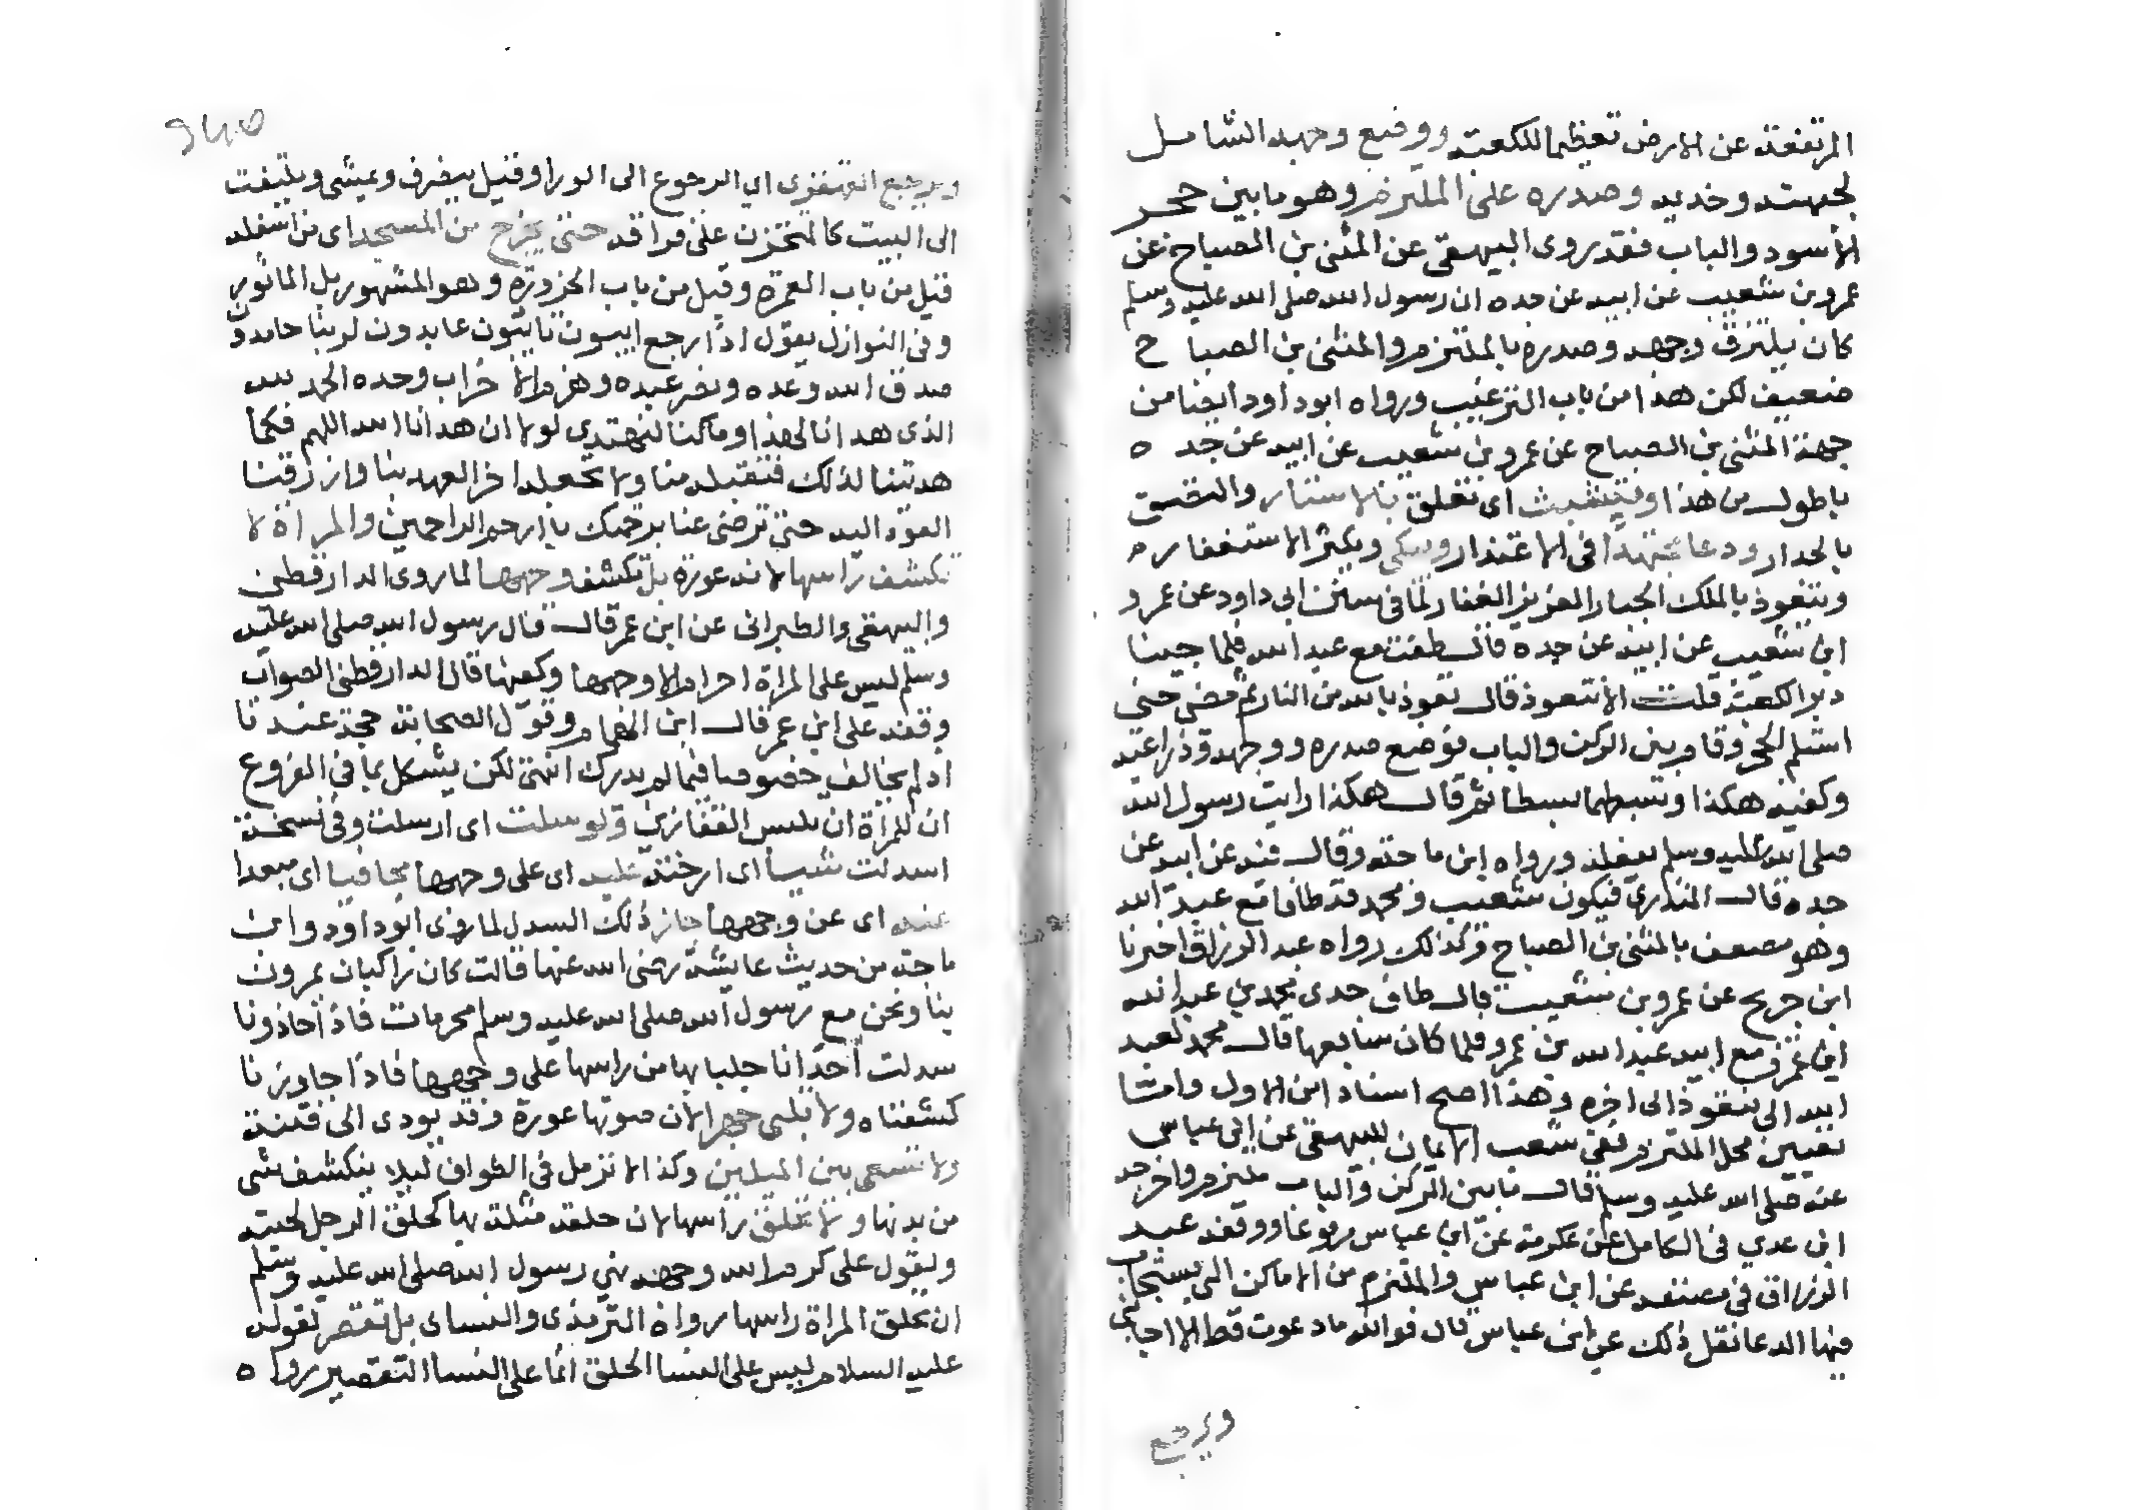 المرتفعة عن الارض تعظيما للكعبة ووضع وجهه الشامل
لجبهته وخديه وصدره على الملتزم وهو ما بين حجر
الأسود والباب فقد روى البيهقي عن المثنى بن الصباح عن
عمرو بن شعيب عن ابيه عن جده ان رسول الله صلى الله عليه وسلم
كان يلتزق وجهه وصدره بالملتزم والمثنى بن الصباح
ضعيف لكن هذا من باب الترغيب ورواه ابو داود ايضا من
جهة المثنى بن الصباح عن عمرو بن شعيب عن ابيه عن جده
باطول من هذا ويتشبث اى تعلق بالاستار والتصق
بالجدار ودعا مجتهدا فى الاعتذار ويبكى ويكثر الاستغفار
ويتعوذ بالملك الجبار العزيز الغفار لما فى سنن ابى داود عن عمرو
ابن شعيب عن ابيه عن جده قال طفت مع عبد الله فلما جينا
دبر الكعبة قلت الا تتعوذ قال نعوذ بالله من النار ثم مضى حتى
استلم الحجر وقام بين الركن والباب فوضع صدره ووجهه وذراعيه
وكفيه هكذا وبسطهما بسطا ثم قال هكذا رايت رسول الله
صلى الله عليه وسلم يفعله ورواه ابن ماجة وقال فيه عن ابيه عن
جده قال المنذري فيكون شعيب ومحمد قد طافا مع عبد الله
وهو مضعف بالمثنى بن الصباح وكذلك رواه عبد الرزاق اخبرنا
ابن جريج عن عمرو بن شعيب قال طاف جدى محمد بن عبد الله
ابن عمرو مع ابيه عبد الله بن عمرو فلما كان سابعها قال محمد لعبد
ابيه الى يتعوذ الى اخره وهذا اصح اسناد ابن الاول وامشا
تعيين محل الملتزم ففى شعب الايمان للبيهقى عن ابن عباس
عنه صلى الله عليه وسلم قال ما بين الركن والباب ملتزم واخرجه
ابن عدي فى الكامل عن عكرمة عن ابن عباس مرفوعا ووقفه عبد
الرزاق في مصنفه عن ابن عباس والملتزم من الاماكن التى يستجاب
فيها الدعا نقل ذلك عن ابن عباس قال فوالله ما دعوت قط الا اجابنى
ويرجع
ويرجع القهقرى اى الرجوع الى الورا وقيل ينصرف ويمشى ويلتفت
الى البيت كالمتحزن على فراقه حتى يخرج من المسجد اى من اسفله
قيل من باب العمرة وقيل من باب الحزورة وهو المشهور بل الماثور
وفى النوازل يقول اذا رجع ايبون تايبون عابدون لربنا حامدون
صدق الله وعده ونصر عبده وهزم الاحزاب وحده الحمد لله
الذى هدانا لهذا وما كنا لنهتدي لولا ان هدانا الله اللهم فكما
هديتنا لذلك فتقبله منا ولا تجعله اخر العهد بنا وارزقنا
العود اليه حتى ترضى عنا برحمتك يا ارحم الراحمين والمراة لا
تكشف راسها لانه عورة بل تكشف وجهها لما روى الدارقطنى
والبيهقى والطبرانى عن ابن عمر قال قال رسول الله صلى الله عليه
وسلم ليس على المراة احرام الا وجهها وكفيها قال الدارقطنى الصواب
وقفه على ابن عمر قال ابن الهمام وقول الصحابة حجة عندنا
اذا لم يخالف خصوصا فيما لم يدرك انتهى لكن يشكل بما فى الفروع
ان للمراة ان تلبس القفازين ولو سدلت اى ارسلت وفى نسخة
اسدلت شيئا اى ارخته عليه اى على وجهها مجافيا اى مبعدا
عنه اى عن وجهها جاز ذلك السدل لما روى ابو داود وابن
ماجة من حديث عايشة رضى الله عنها قالت كان الركبان يمرون
بنا ونحن مع رسول الله صلى الله عليه وسلم محرمات فاذا حاذونا
سدلت احدانا جلبابها من راسها على وجهها فاذا جاوزنا
كشفناه ولا تلبى جهرا لان صوتها عورة وقد يودى الى فتنة
ولا تسعى بين الميلين وكذا لا ترمل فى الطواف ليلا ينكشف شى
من بدنها ولا تحلق راسها لان حلقه مثلة بها كحلق الرجل لحيته
ولقول على كرم الله وجهه نهى رسول الله صلى الله عليه وسلم
ان تحلق المراة راسها رواه الترمذى والنساى بل تقصر لقوله
عليه السلام ليس على النسا الحلق انما على النسا التقصير رواه